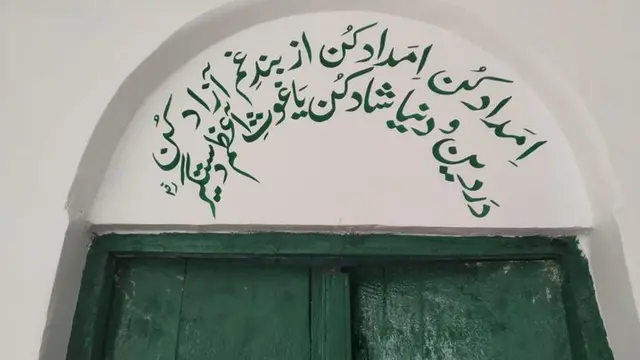 اِمداد کُن اِمداد کُن از بندِ غم آزاد کُن
در دین و دنیا شاد کُن یا غوثِ اعظم دستگیر